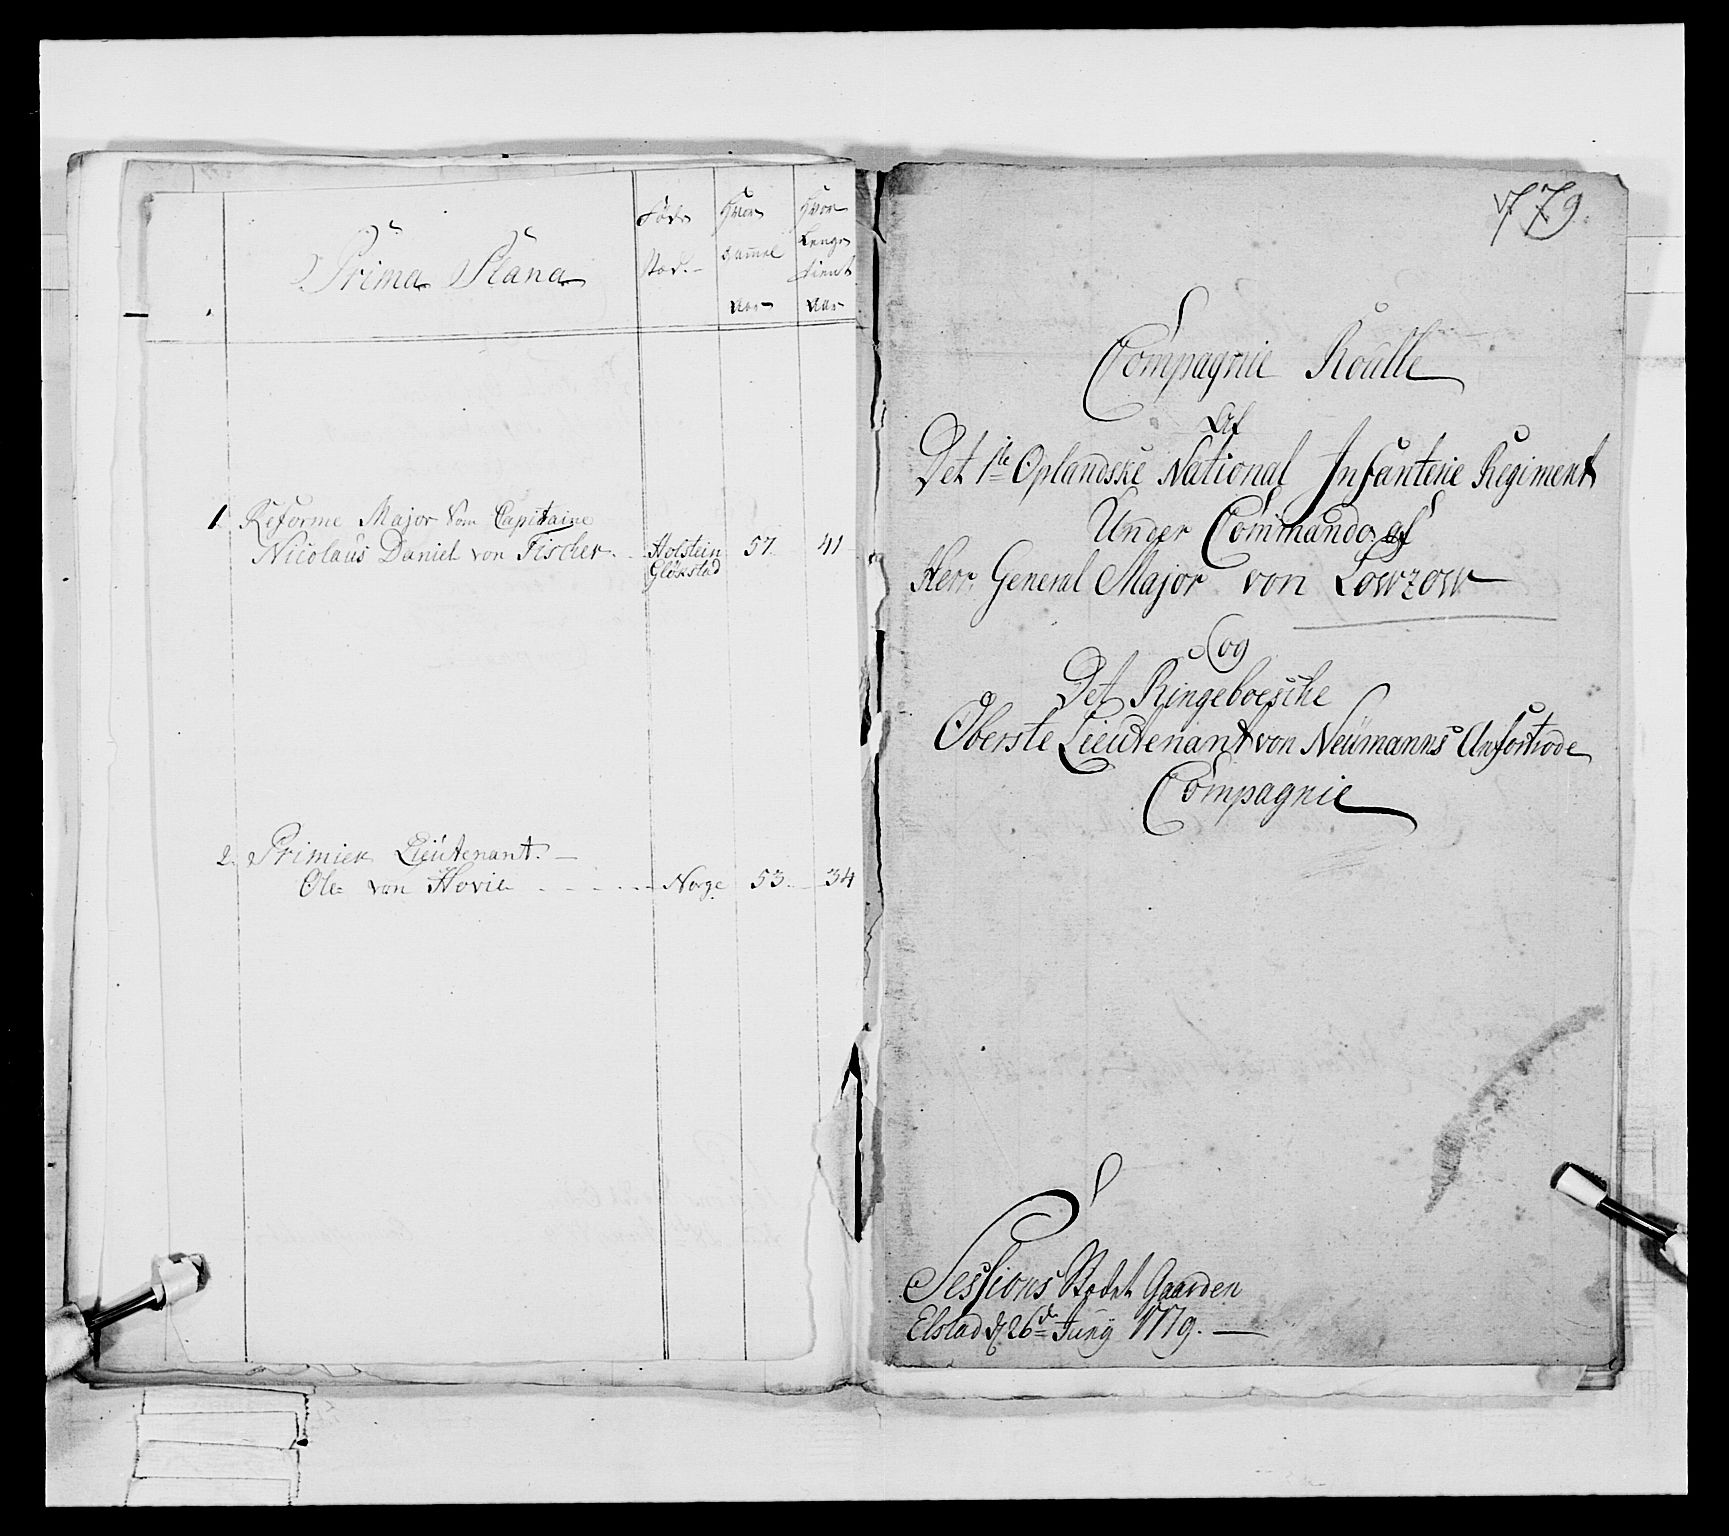 Prima Plana
Føde
Stæd.
Hvor
Gammel
Aar
Hvor
Lenge
tient
Aar
1. Reforme Major som Capitaine
Nicolaus Daniel von Fischer. Holstein 57. 41
Glükstad
2. Primier Lieutenant.
Ole von Hovie Norge 53. 34
779.
Compagnie Roulle
Af
Det 1te Oplandske National Infanterie Regiment
Under Commando af
Herr General Major von Lowzow
og
Det Ringeboesche
Oberste Lieutenant von Neumanns Anfortrode
Compagnie
Sessions Stedet Gaarden
Elstad d 26de Juny 1779.